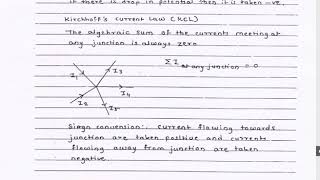 If there is drop in potential then it is taken -ve.
Kirchhoff's current Law (KCL)
The algebraic sum of the currents meeting at
any junction is always zero
Σ I at any junction = 0
I1
I3
I4
I2
I5
Sign convention:. current flowing towards
junction are taken positive and currents
flowing away from junction are taken
negative.